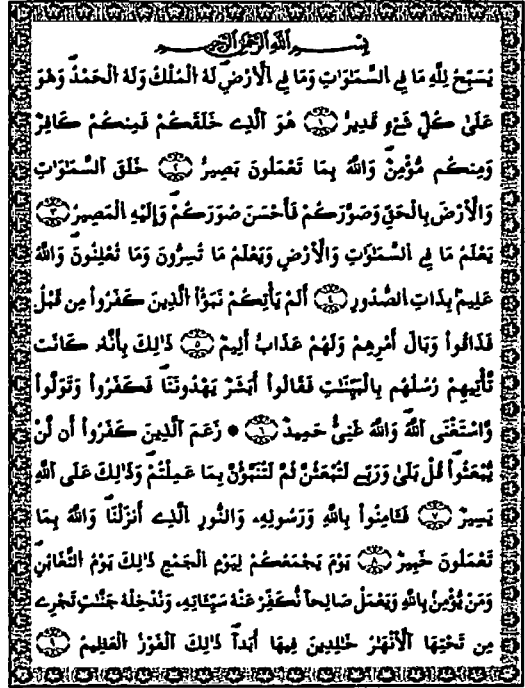 بِسْمِ اللَّهِ الرَّحْمَٰنِ الرَّحِيمِ
يُسَبِّحُ لِلهِ مَا فِي السَّمَٰوَٰتِ وَمَا فِي الْأَرْضِ لَهُ الْمُلْكُ وَلَهُ الْحَمْدُ وَهُوَ
عَلَىٰ كُلِّ شَيْءٍ قَدِيرٌ ١ هُوَ الَّذِي خَلَقَكُمْ فَمِنكُمْ كَافِرٌ
وَمِنكُم مُّؤْمِنٌ وَاللَّهُ بِمَا تَعْمَلُونَ بَصِيرٌ ٢ خَلَقَ السَّمَٰوَٰتِ
وَالْأَرْضَ بِالْحَقِّ وَصَوَّرَكُمْ فَأَحْسَنَ صُوَرَكُمْ وَإِلَيْهِ الْمَصِيرُ ٣
يَعْلَمُ مَا فِي السَّمَٰوَٰتِ وَالْأَرْضِ وَيَعْلَمُ مَا تُسِرُّونَ وَمَا تُعْلِنُونَ وَاللَّهُ
عَلِيمٌ بِذَاتِ الصُّدُورِ ٤ أَلَمْ يَأْتِكُمْ نَبَؤُاْ الَّذِينَ كَفَرُواْ مِن قَبْلُ
فَذَاقُواْ وَبَالَ أَمْرِهِمْ وَلَهُمْ عَذَابٌ أَلِيمٌ ٥ ذَٰلِكَ بِأَنَّهُ كَانَت
تَّأْتِيهِمْ رُسُلُهُم بِالْبَيِّنَٰتِ فَقَالُواْ أَبَشَرٌ يَهْدُونَنَا فَكَفَرُواْ وَتَوَلَّواْ
وَّاسْتَغْنَى اللَّهُ وَاللَّهُ غَنِيٌّ حَمِيدٌ ٦ * زَعَمَ الَّذِينَ كَفَرُواْ أَن لَّنْ
يُبْعَثُواْ قُلْ بَلَىٰ وَرَبِّي لَتُبْعَثُنَّ ثُمَّ لَتُنَبَّؤُنَّ بِمَا عَمِلْتُمْ وَذَٰلِكَ عَلَى اللَّهِ
يَسِيرٌ ٧ فَـَٔامِنُواْ بِاللَّهِ وَرَسُولِهِ وَالنُّورِ الَّذِي أَنزَلْنَا وَاللَّهُ بِمَا
تَعْمَلُونَ خَبِيرٌ ٨ يَوْمَ يَجْمَعُكُمْ لِيَوْمِ الْجَمْعِ ذَٰلِكَ يَوْمُ التَّغَابُنِ
وَمَن يُّؤْمِنۢ بِاللَّهِ وَيَعْمَلْ صَالِحاً نُّكَفِّرْ عَنْهُ سَيِّـَٔاتِهِ وَنُدْخِلْهُ جَنَّٰتٍ تَجْرِي
مِن تَحْتِهَا الْأَنْهَٰرُ خَٰلِدِينَ فِيهَا أَبَداً ذَٰلِكَ الْفَوْزُ الْعَظِيمُ ٩